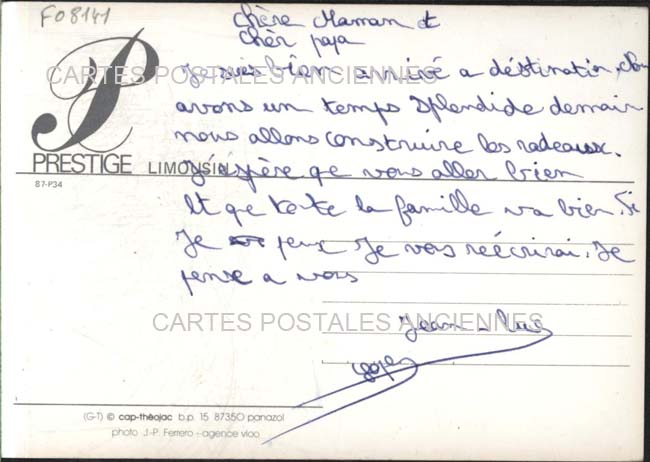 F08141
chère Maman et
chèr papa
Je suis bien arrivé a déstination, nous
avons un temps splendide demain
nous allons construire les radeaux.
J'éspère que vous aller bien
et que toute la famille va bien. Si
Je peux Je vous réécrirai. Je
pense a vous
Jean-Luc
CARTES POSTALES ANCIENNES
CARTES POSTALES ANCIENNES
P
PRESTIGE LIMOUSIN
87-P34
(G-T) © cap-théojac b.p. 15 87350 panazol
photo J.-P. Ferrero - agence vloo